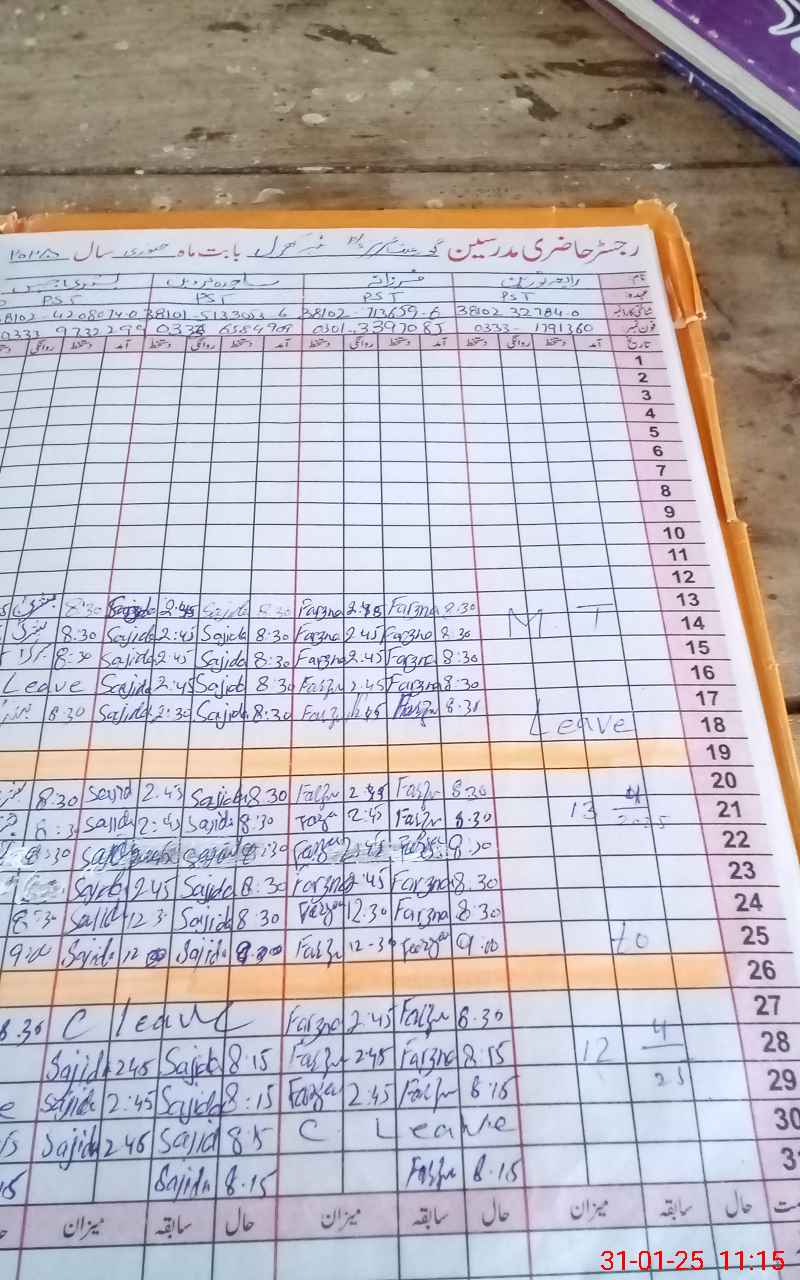 رجسٹر حاضری مدرسین بابت ماہ جنوری سال
نام رابعہ نورین فرزانہ ساجدہ پروین بشریٰ
عہدہ PST PST PST PST
شناختی کارڈ نمبر 38102 32784-0 38102-713659-6 38101-5133053-6 38102-4208074-0
فون نمبر 0333-1791360 0301-3397085 0334 6584909 0333 9732299
تاریخ آمد دستخط روانگی دستخط آمد دستخط روانگی دستخط آمد دستخط روانگی دستخط آمد دستخط روانگی
1
2
3
4
5
6
7
8
9
10
11
12
8:30 Sajida 2:45 Sajida 8:30 Farzna 2:45 Farzna 8:30 13
8:30 Sajida 2:45 Sajida 8:30 Farzna 2:45 Farzna 8:30 M. T 14
8:30 Sajida 2:45 Sajida 8:30 Farzna 2:45 Farzna 8:30 15
Leave Sajida 2:45 Sajid 8:30 Farzn 2:45 Farzna 8:30 16
8:30 Sajida 2:30 Sajida 8:30 Farzn 2:45 Farzn 8:30 17
Leave 18
19
8:30 Sajid 2:45 Sajida 8:30 Farzn 2:45 Farzn 8:30 20
8:3 Sajida 2:45 Sajida 8:30 Farzn 2:45 Farzn 8:30 13 4/2025 21
8:30 8:30 Farzna 2:45 Farzna 8:30 22
Sajida 2:45 Sajida 8:30 Farzna 2:45 Farzna 8:30 23
8:30 Sajida 12:3 Sajida 8:30 Farzna 12:30 Farzna 8:30 24
9:00 Sajida 12 Sajida 9:00 Farzn 12-30 Farzna 9:00 to 25
26
8.30 C leave Farzna 2:45 Farzn 8:30 27
Sajida 2:45 Sajida 8:15 Farzn 2:45 Farzna 8:15 12 4/25 28
Sajida 2:45 Sajida 8:15 Farzna 2:45 Farzn 8:15 29
Sajida 2:45 Sajid 8:15 C Leave 30
Sajida 8.15 Farzn 8.15 31
حال سابقہ میزان حال سابقہ میزان حال سابقہ میزان
31-01-25 11:15